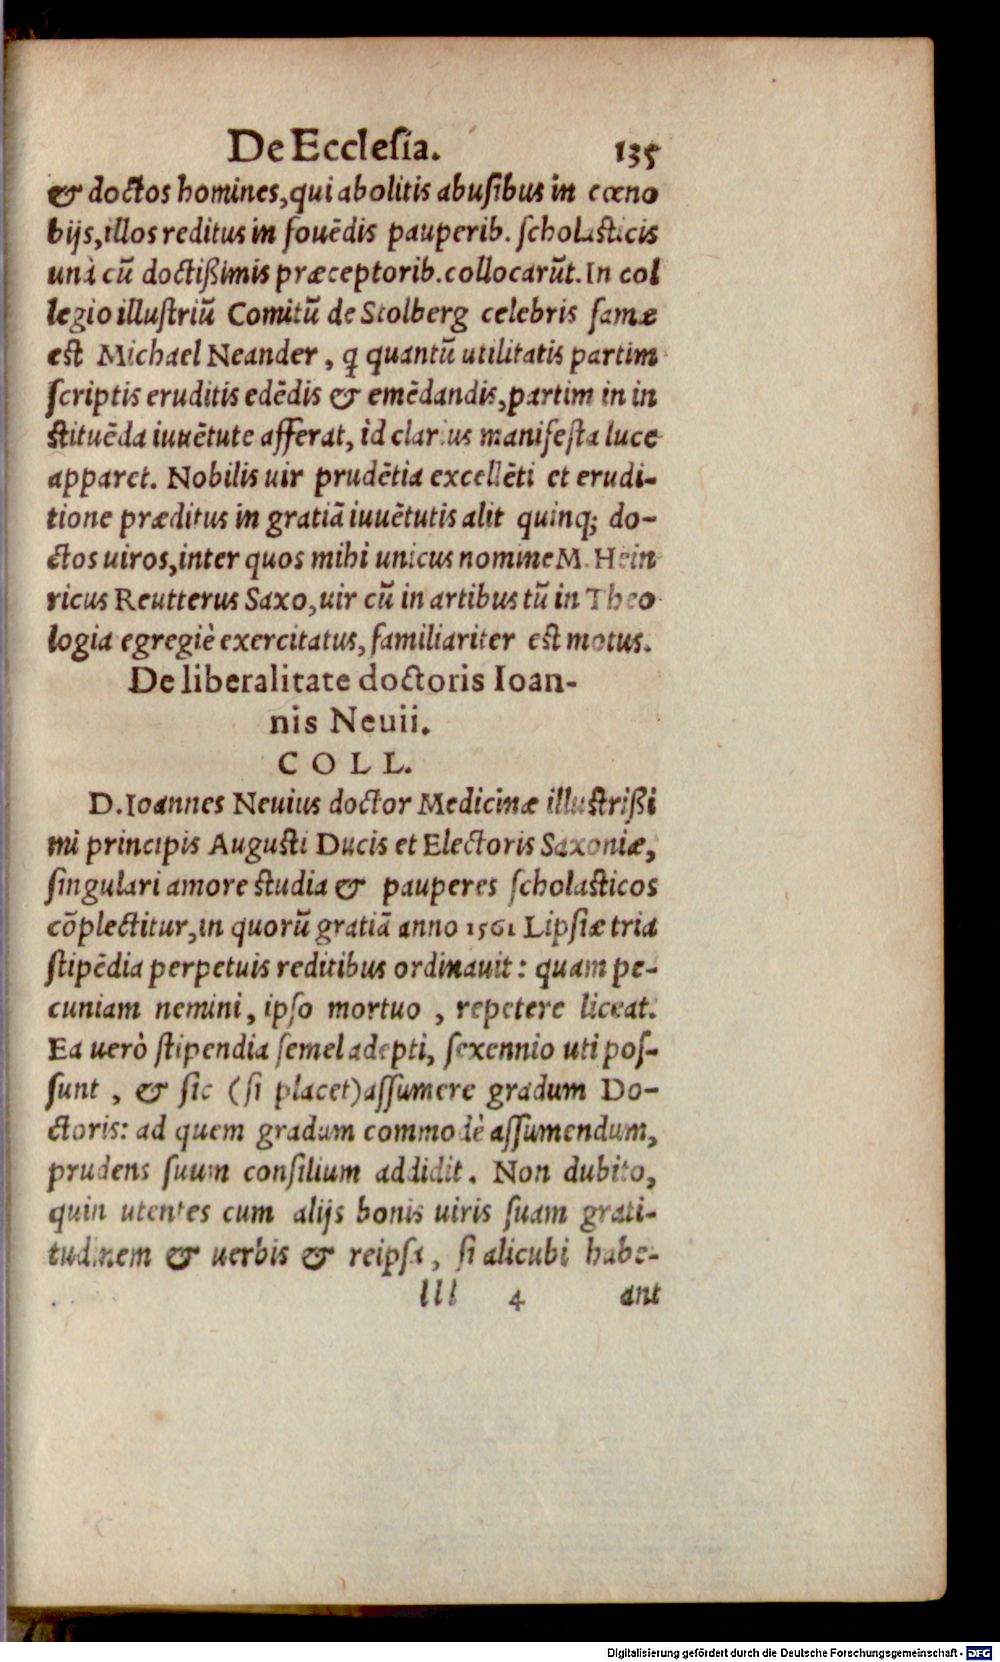 De Ecclesia. 135
& doctos homines, qui abolitis abusibus in cœno
bijs, illos reditus in fouēdis pauperib. scholasticis
unà cū doctißimis præceptorib. collocarūt. In col
legio illustriū Comitū de Stolberg celebris famæ
est Michael Neander, q quantū utilitatis partim
scriptis eruditis edēdis & emēdandis, partim in in
stituēda iuuētute afferat, id clarius manifesta luce
apparet. Nobilis uir prudētia excellēti et erudi-
tione præditus in gratiā iuuētutis alit quinq; do-
ctos uiros, inter quos mihi unicus nomine M. Hein
ricus Reutterus Saxo, uir cū in artibus tū in Theo
logia egregiè exercitatus, familiariter est motus.
De liberalitate doctoris Ioan-
nis Neuii.
COLL.
D. Ioannes Neuius doctor Medicinæ illustrißi
mi principis Augusti Ducis et Electoris Saxoniæ,
singulari amore studia & pauperes scholasticos
cōplectitur, in quorū gratiā anno 1561 Lipsiæ tria
stipēdia perpetuis reditibus ordinauit: quam pe-
cuniam nemini, ipso mortuo, repetere liceat.
Ea uerò stipendia semel adepti, sexennio uti pos-
sunt, & sic (si placet) assumere gradum Do-
ctoris: ad quem gradum commodè assumendum,
prudens suum consilium addidit. Non dubito,
quin utentes cum alijs bonis uiris suam grati-
tudinem & uerbis & reipsa, si alicubi habe-
lll 4 ant
Digitalisierung gefördert durch die Deutsche Forschungsgemeinschaft - DFG